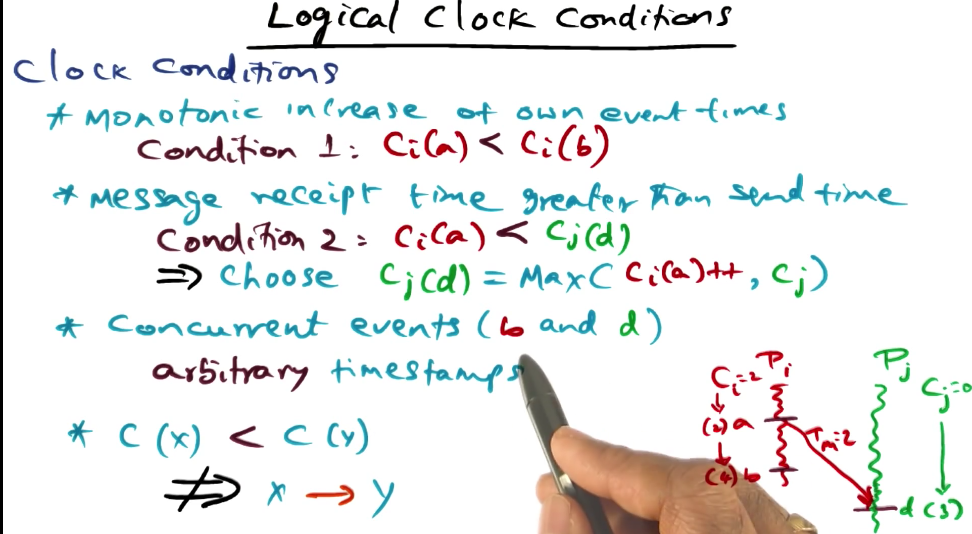 Logical Clock Conditions
Clock Conditions
* Monotonic increase of own event times
Condition 1: Ci(a) < Ci(b)
* Message receipt time greater than send time
Condition 2: Ci(a) < Cj(d)
⇒ Choose Cj(d) = Max(Ci(a)++, Cj)
* Concurrent events (b and d)
arbitrary timestamps
* C(x) < C(y)
⇏ x → y
Pi
Pj
Ci=2
Cj=0
(2) a
Tm=2
(4) b
d (3)